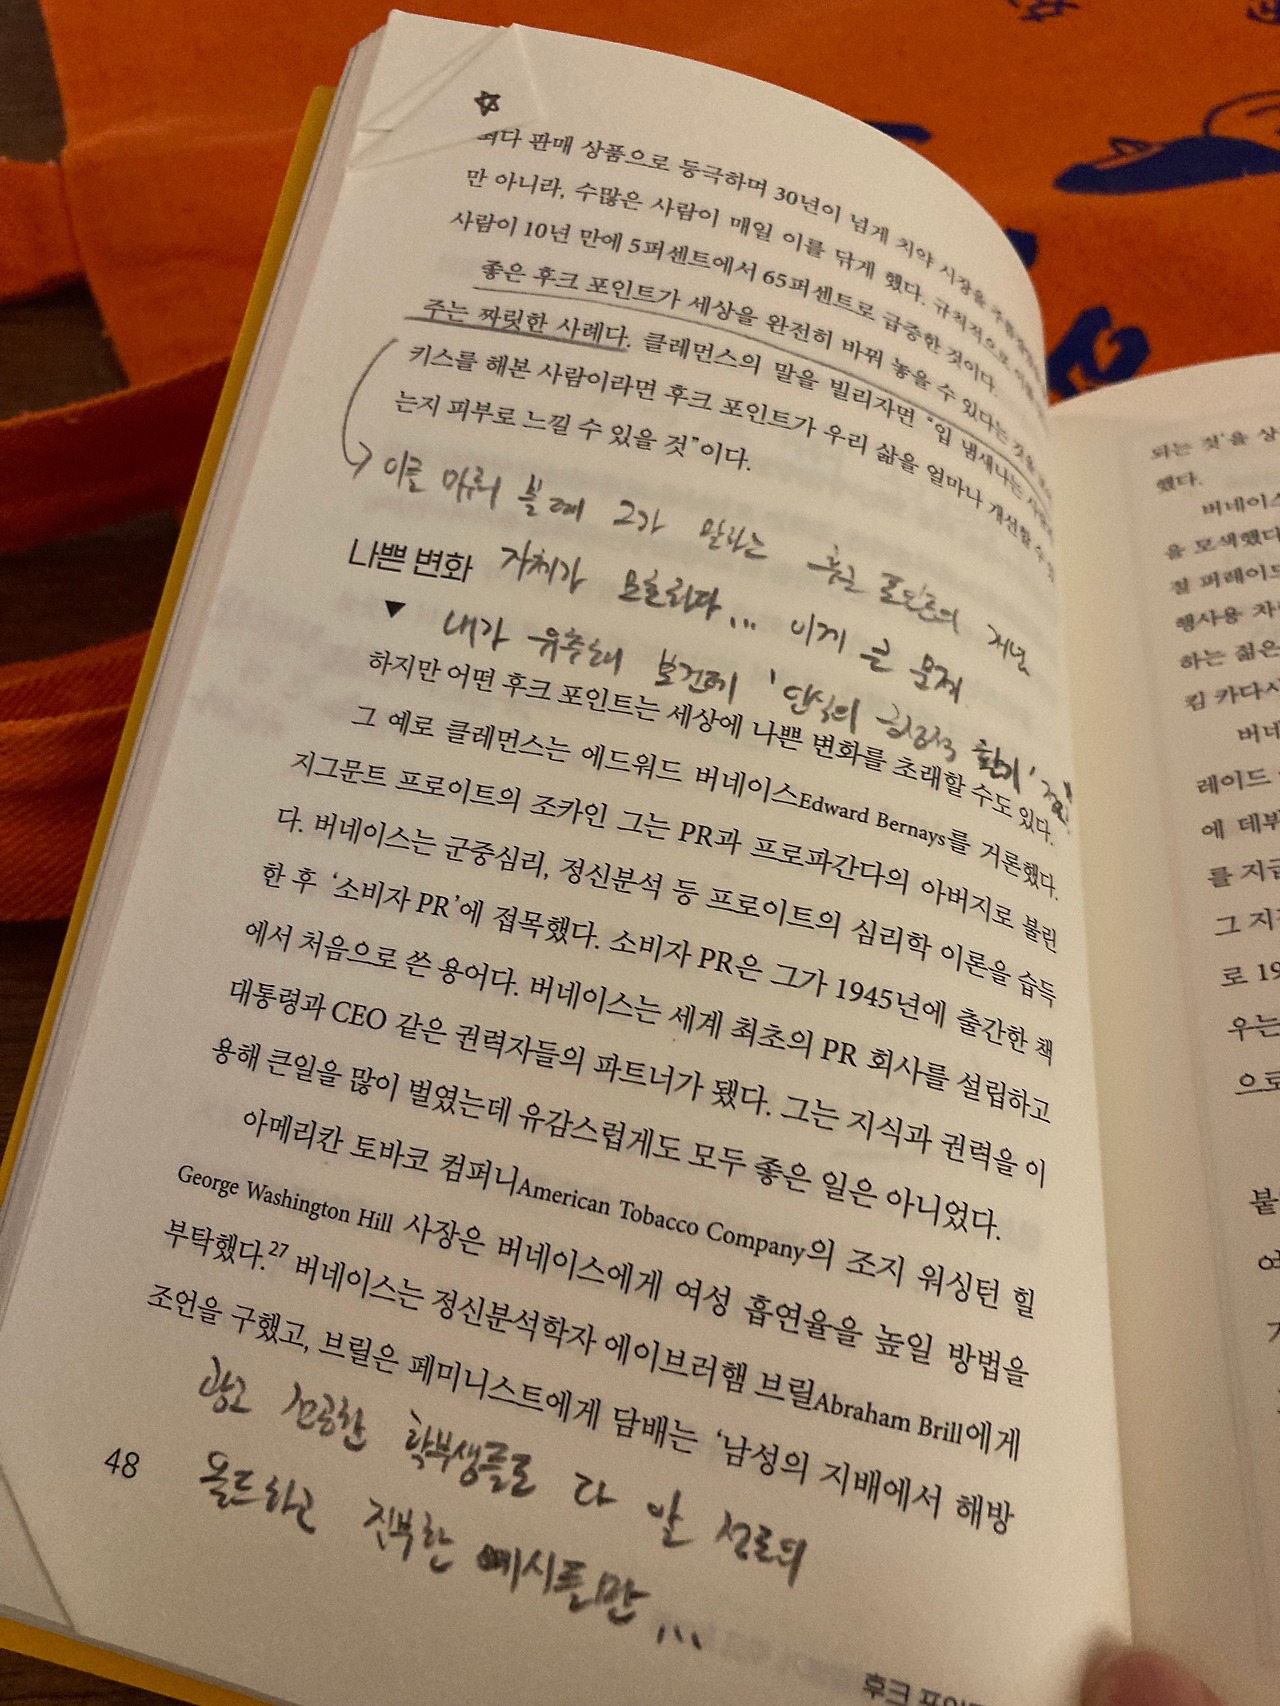 최다 판매 상품으로 등극하며 30년이 넘게 치약 시장을
만 아니라, 수많은 사람이 매일 이를 닦게 했다. 규칙적으로
사람이 10년 만에 5퍼센트에서 65퍼센트로 급증한 것이다.
좋은 후크 포인트가 세상을 완전히 바꿔 놓을 수 있다는 것을
주는 짜릿한 사례다. 클레먼스의 말을 빌리자면 “입 냄새나는
키스를 해본 사람이라면 후크 포인트가 우리 삶을 얼마나 개선할 수
는지 피부로 느낄 수 있을 것”이다.
이를 미루어 볼 때 그가 말하는 후크 포인트의 개념
나쁜 변화
자체가 모호하다... 이게 큰 문제
▼
내가 유추해 보건데 '인식의 긍정적 환기'
하지만 어떤 후크 포인트는 세상에 나쁜 변화를 초래할 수도 있다.
그 예로 클레먼스는 에드워드 버네이스Edward Bernays를 거론했다.
지그문트 프로이트의 조카인 그는 PR과 프로파간다의 아버지로 불린
다. 버네이스는 군중심리, 정신분석 등 프로이트의 심리학 이론을 습득
한 후 ‘소비자 PR’에 접목했다. 소비자 PR은 그가 1945년에 출간한 책
에서 처음으로 쓴 용어다. 버네이스는 세계 최초의 PR 회사를 설립하고
대통령과 CEO 같은 권력자들의 파트너가 됐다. 그는 지식과 권력을 이
용해 큰일을 많이 벌였는데 유감스럽게도 모두 좋은 일은 아니었다.
아메리칸 토바코 컴퍼니American Tobacco Company의 조지 워싱턴 힐
George Washington Hill 사장은 버네이스에게 여성 흡연율을 높일 방법을
부탁했다.27 버네이스는 정신분석학자 에이브러햄 브릴Abraham Brill에게
조언을 구했고, 브릴은 페미니스트에게 담배는 ‘남성의 지배에서 해방
광고 전공한 학부생들도 다 알 정도의
올드하고 진부한 예시들만...
48
후크 포인트
되는 것’을 상
했다.
버네이스
을 모색했다
절 퍼레이드
행사용 차
하는 젊은
킴 카다시
버네
레이드
에 데뷔
를 지급
그 지
로 19
우는
으로
붙
여